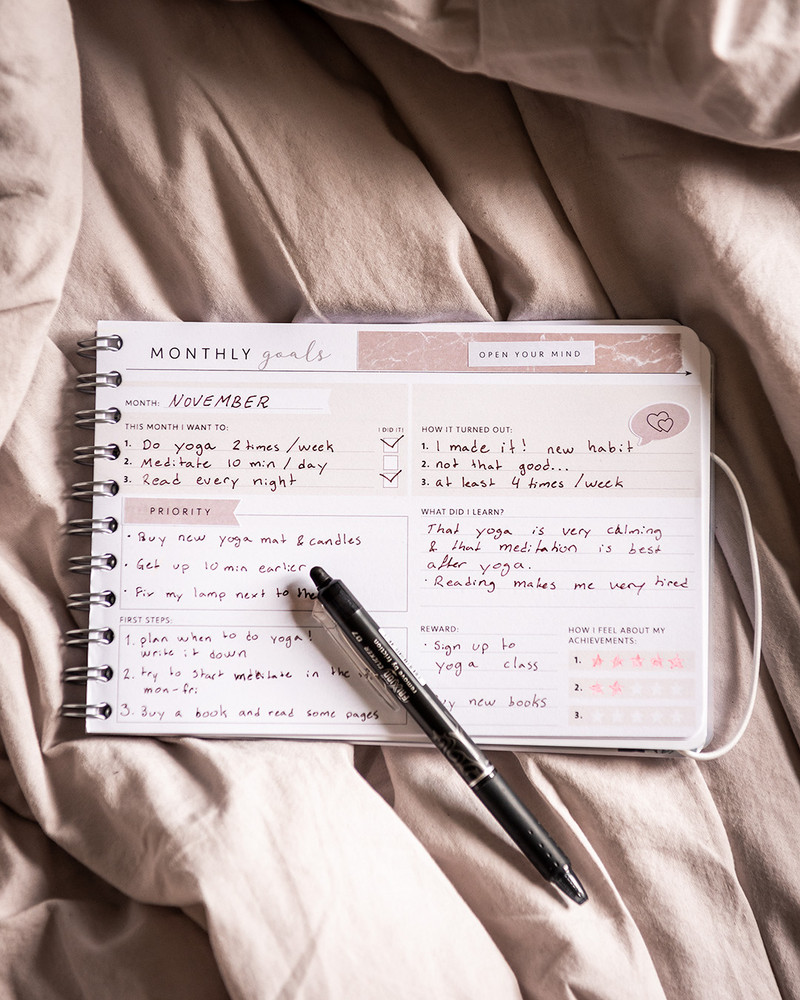 MONTHLY goals
OPEN YOUR MIND
MONTH: NOVEMBER
THIS MONTH I WANT TO: I DID IT!
1. Do yoga 2 times / week
2. Meditate 10 min / day
3. Read every night
HOW IT TURNED OUT:
1. I made it! new habit
2. not that good...
3. at least 4 times / week
PRIORITY
• Buy new yoga mat & candles
• Get up 10 min earlier
• Fix my lamp next to the
WHAT DID I LEARN?
That yoga is very calming
& that meditation is best
after yoga.
• Reading makes me very tired
FIRST STEPS:
1. plan when to do yoga!
write it down
2. try to start meditate in the
mon-fri
3. Buy a book and read some pages
REWARD:
• Sign up to
yoga class
new books
HOW I FEEL ABOUT MY
ACHIEVEMENTS:
1.
2.
3.
remove by friction